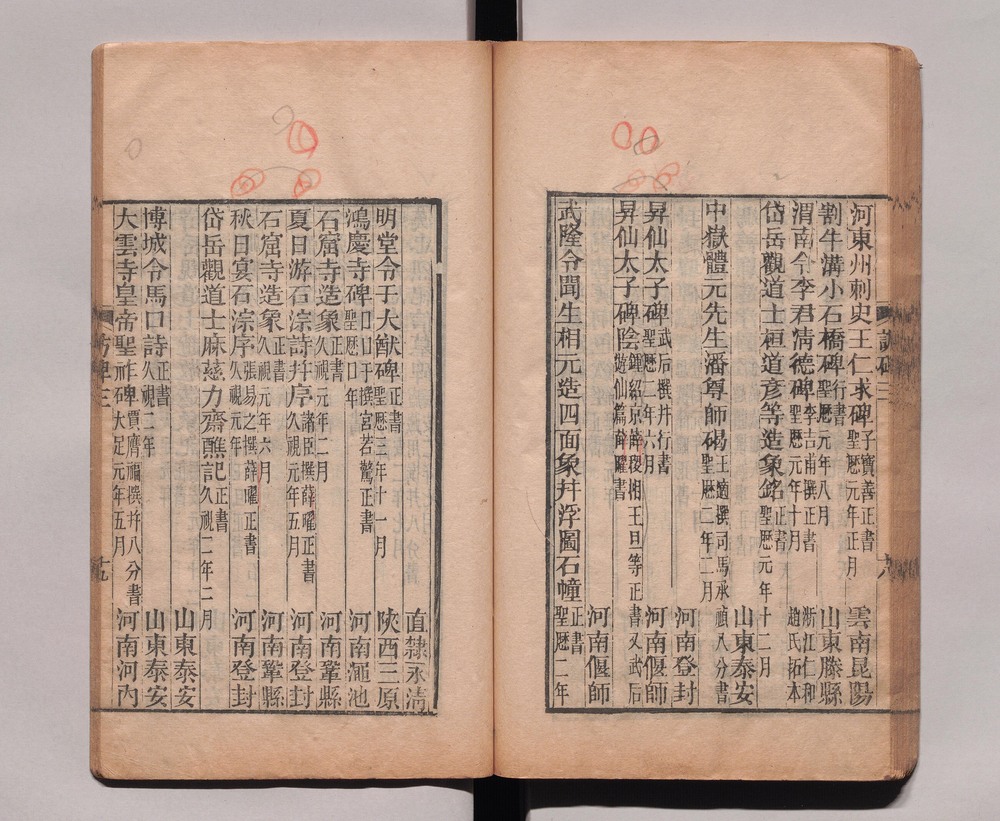 河東州刺史王仁求碑 子寶善正書 聖歷元年正月 雲南昆陽
割牛溝小石橋碑 行書 聖歷元年八月 山東滕縣
渭南令李君清德碑 李吉甫撰正書 聖歷元年十月 浙江仁和趙氏拓本
岱岳觀道士桓道彥等造象銘 正書 聖歷元年十二月 山東泰安
中嶽體元先生潘尊師碣 王適撰司馬承禎八分書 聖歷二年二月 河南登封
昇仙太子碑 武后撰幷行書 聖歷二年六月 河南偃師
昇仙太子碑陰 鍾紹京薛稷相王旦等正書又武后遊仙篇薛曜書 河南偃師
武隆令聞生相元造四面象幷浮圖石幢 正書 聖歷二年
直隸永清
明堂令于大猷碑 正書 聖歷三年十一月 陝西三原
鴻慶寺碑 口口于撰宮若驚正書 聖歷口年 河南澠池
石窟寺造象 正書 久視元年二月 河南鞏縣
夏日游石淙詩幷序 諸臣撰薛曜正書 久視元年五月 河南登封
石窟寺造象 正書 久視元年六月 河南鞏縣
秋日宴石淙序 張易之撰薛曜正書 久視元年 河南登封
岱岳觀道士麻慈力齋醮記 正書 久視二年二月
山東泰安
博城令馬口詩 正書 久視二年 山東泰安
大雲寺皇帝聖祚碑 賈膺福撰幷八分書 大足元年五月 河南河內
訪碑三
十九